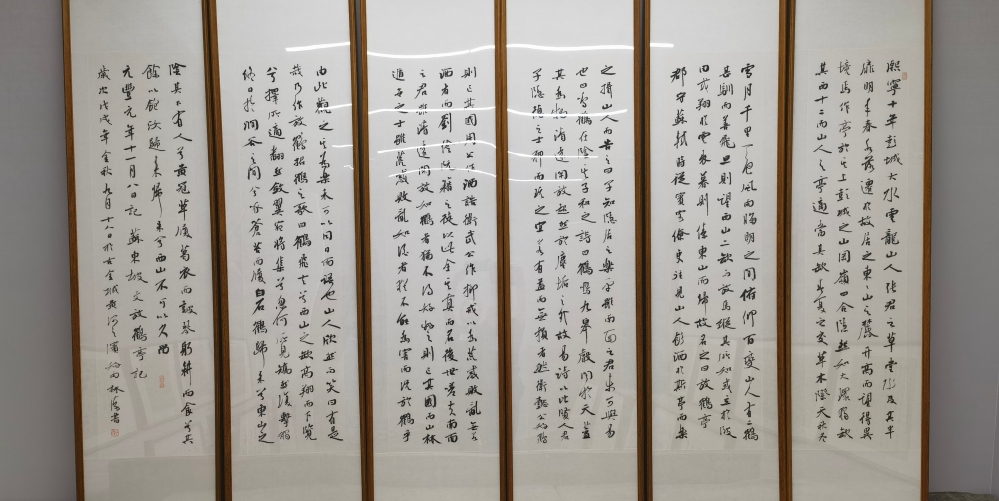 熙寧十年彭城大水雲龍山人張君之草堂水及其半
扉明年春水落遷於故居之東東山之麓升高而望得異
境焉作亭於其上彭城之山岡嶺四合隱然如大環獨缺
其西十二而山人之亭適當其缺春夏之交草木際天秋冬
雪月千里一色風雨晦明之間俯仰百變山人有二鶴
甚馴而善飛旦則望西山之缺而放焉縱其所如或立於陂
田或翔於雲表暮則傃東山而歸故名之曰放鶴亭
郡守蘇軾時從賓客僚吏往見山人飲酒於斯亭而樂
之揖山人而告之曰子知隱居之樂乎雖南面之君未可與易
也曰鳴鶴在陰其子和之詩曰鶴鳴九皋聲聞於天蓋
其為物清遠閒放超然於塵垢之外故易詩以比賢人君
子隱德之士狎而玩之宜若有益而無損者然衛懿公好鶴
則亡其國周公作酒誥衛武公作抑戒以為荒惑敗亂無若
酒者而劉伶阮籍之徒以此全其真而名後世嗟夫南面
之君雖清遠閒放如鶴者猶不得好好之則亡其國而山林
遁世之士雖荒惑敗亂如酒者猶不能為害而況於鶴乎
由此觀之其為樂未可以同日而語也山人欣然而笑曰有是
哉乃作放鶴招鶴之歌曰鶴飛去兮西山之缺高翔而下覽
兮擇所適翻然斂翼宛將集兮忽何所見矯然復擊獨
終日於澗谷之間兮啄蒼苔而履白石鶴歸來兮東山之
陰其下有人兮黃冠草履葛衣而鼓琴躬耕而食兮其
餘以飽汝歸來歸來兮西山不可以久留
元豐元年十一月八日記 蘇東坡文放鶴亭記
歲次戊戌年金秋九月十八日於古金城黃河之濱 書